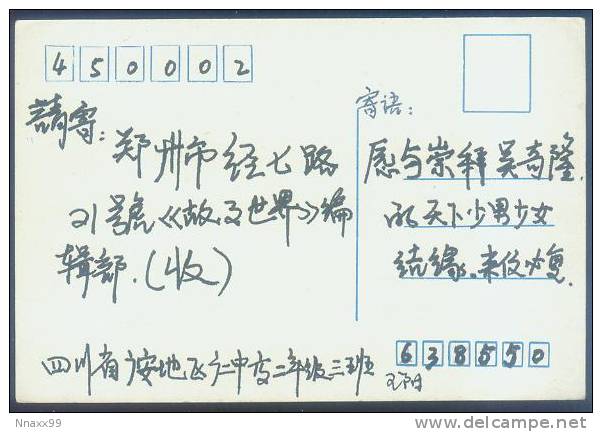 450002
請寄：郑州市经七路
21號《故事世界》编
辑部.(收)
寄语：
愿与崇拜吴奇隆
的天下少男少女
结缘.来信必复.
638550
四川省广安地区广二中高二年级三班
Nnaxx99
delcampe.net